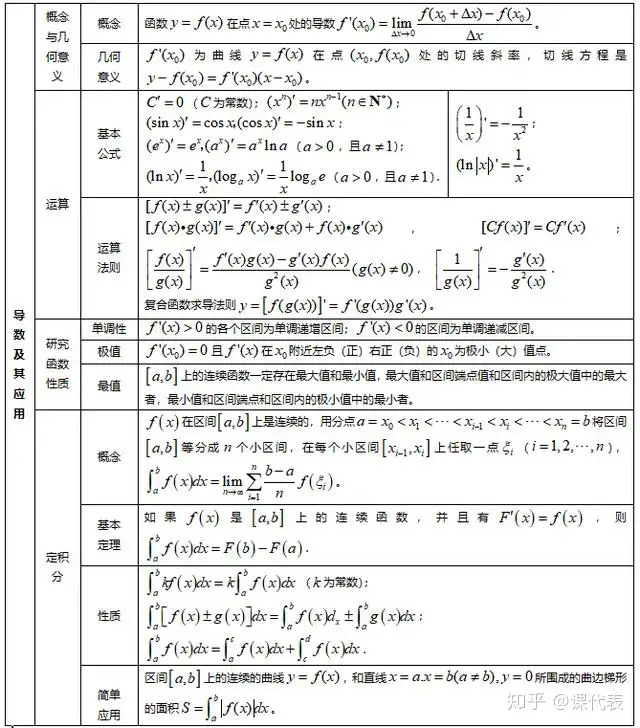 导数及其应用
概念与几何意义
概念
函数 y = f(x) 在点 x = x₀ 处的导数 f'(x₀) = lim_{Δx→0} (f(x₀ + Δx) − f(x₀))/Δx 。
几何意义
f'(x₀) 为曲线 y = f(x) 在点 (x₀, f(x₀)) 处的切线斜率，切线方程是
y − f(x₀) = f'(x₀)(x − x₀) 。
运算
基本公式
C' = 0 （C 为常数）；(xⁿ)' = nxⁿ⁻¹(n ∈ N*)；
(sin x)' = cos x, (cos x)' = −sin x；
(eˣ)' = eˣ, (aˣ)' = aˣ ln a （a > 0，且 a ≠ 1）；
(ln x)' = 1/x, (logₐ x)' = 1/x logₐ e （a > 0，且 a ≠ 1）．
(1/x)' = −1/x²；
(ln|x|)' = 1/x 。
运算法则
[f(x) ± g(x)]' = f'(x) ± g'(x)；
[f(x)•g(x)]' = f'(x)•g(x) + f(x)•g'(x) ， [Cf(x)]' = Cf'(x) ；
[f(x)/g(x)]' = (f'(x)g(x) − g'(x)f(x))/g²(x) (g(x) ≠ 0)，[1/g(x)]' = −g'(x)/g²(x)．
复合函数求导法则 y = [f(g(x))]' = f'(g(x))g'(x)。
研究函数性质
单调性
f'(x) > 0 的各个区间为单调递增区间；f'(x) < 0 的区间为单调递减区间。
极值
f'(x₀) = 0 且 f'(x) 在 x₀ 附近左负（正）右正（负）的 x₀ 为极小（大）值点。
最值
[a,b] 上的连续函数一定存在最大值和最小值，最大值和区间端点值和区间内的极大值中的最大
者，最小值和区间端点和区间内的极小值中的最小者。
定积分
概念
f(x) 在区间 [a,b] 上是连续的，用分点 a = x₀ < x₁ < ⋯ < xᵢ₋₁ < xᵢ < ⋯ < xₙ = b 将区间
[a,b] 等分成 n 个小区间，在每个小区间 [xᵢ₋₁, xᵢ] 上任取一点 ξᵢ （i = 1,2,⋯,n），
∫ₐᵇ f(x)dx = lim_{n→∞} ∑_{i=1}^{n} (b−a)/n f(ξᵢ)。
基本定理
如果 f(x) 是 [a,b] 上的连续函数，并且有 F'(x) = f(x)，则
∫ₐᵇ f(x)dx = F(b) − F(a)．
性质
∫ₐᵇ kf(x)dx = k∫ₐᵇ f(x)dx （k 为常数）；
∫ₐᵇ [f(x) ± g(x)]dx = ∫ₐᵇ f(x)dₓ ± ∫ₐᵇ g(x)dx；
∫ₐᵇ f(x)dx = ∫ₐᶜ f(x)dx + ∫_c^d f(x)dx．
简单应用
区间 [a,b] 上的连续的曲线 y = f(x)，和直线 x = a.x = b(a ≠ b), y = 0 所围成的曲边梯形
的面积 S = ∫ₐᵇ |f(x)|dx。
知乎 @课代表